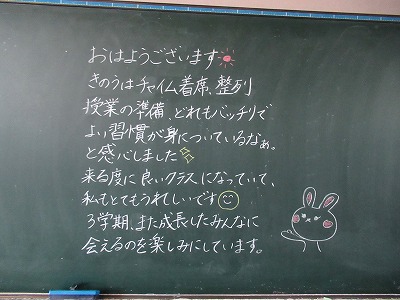 おはようございます
きのうはチャイム着席、整列
授業の準備、どれもバッチリで
よい習慣が身についているなぁ。
と感心しました
来る度に良いクラスになっていて、
私もとてもうれしいです
3学期、また成長したみんなに
会えるのを楽しみにしています。